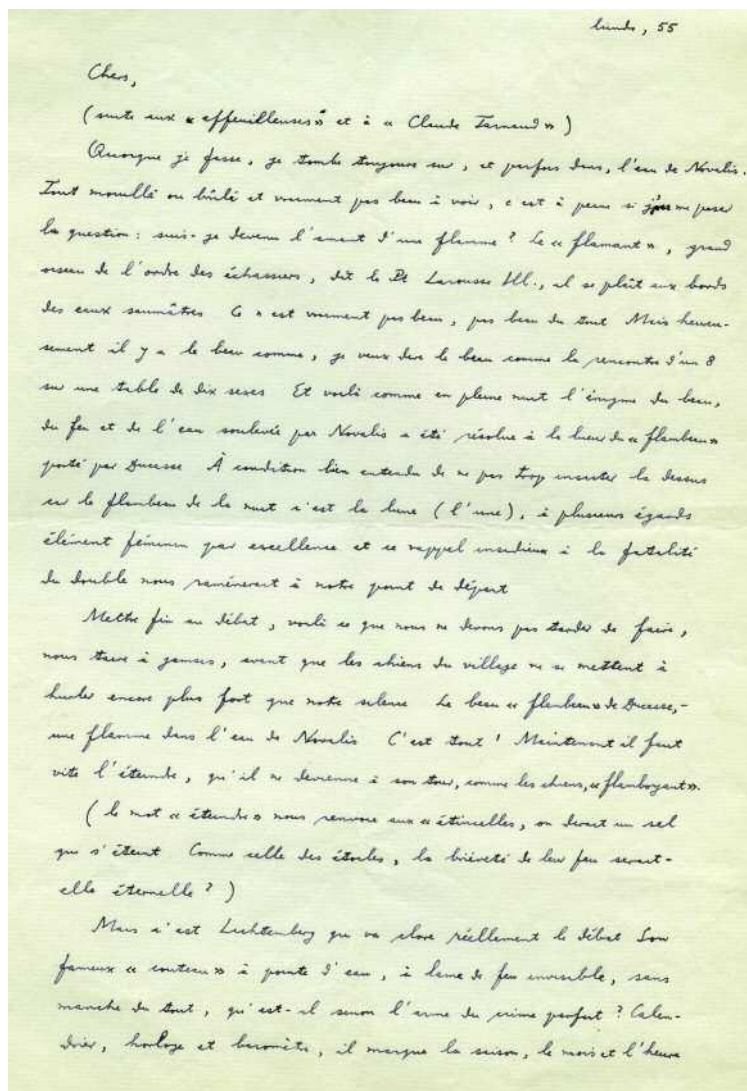 lundi, 55
Chers,
(suite aux « effeuilleuses » et à « Claude Tarnaud »)
Quoique je fasse, je tombe toujours sur, et parfois dans, l'eau de Novalis.
Tout mouillé ou brûlé et vraiment pas beau à voir, c'est à peine si j'ose me poser
la question : suis-je devenu l'amant d'une flamme ? Le « flamant », grand
oiseau de l'ordre des échassiers, dit le Pt Larousse Ill., il se plaît aux bords
des eaux saumâtres Ce n'est vraiment pas beau, pas beau du tout Mais heureu-
sement il y a le beau comme, je veux dire le beau comme la rencontre d'un 8
sur une table de dix sexes Et voilà comme en pleine nuit l'énigme du beau,
du feu et de l'eau soulevée par Novalis a été résolue à la lueur du « flambeau »
porté par Ducasse À condition bien entendu de ne pas trop insister là dessus
car le flambeau de la nuit c'est la lune (l'une), à plusieurs égards
élément féminin par excellence et ce rappel insidieux à la fatalité
du double nous ramènerait à notre point de départ
Mettre fin au débat, voilà ce que nous ne devons pas tarder de faire,
nous taire à jamais, avant que les chiens du village ne se mettent à
hurler encore plus fort que notre silence Le beau « flambeau » de Ducasse, -
une flamme dans l'eau de Novalis C'est tout ! Maintenant il faut
vite l'éteindre, qu'il ne devienne à son tour, comme les chiens, « flamboyant ».
(le mot « éteindre » nous renvoie aux « étincelles, on dirait un sel
qui s'éteint Comme celle des étoiles, la brièveté de leur feu serait-
elle éternelle ? )
Mais c'est Lichtenberg qui va clore réellement le débat Son
fameux « couteau » à pointe d'eau, à lame de feu invisible, sans
manche du tout, qu'est-il sinon l'arme du crime parfait ? Calen-
drier, horloge et baromètre, il marque la saison, le mois et l'heure